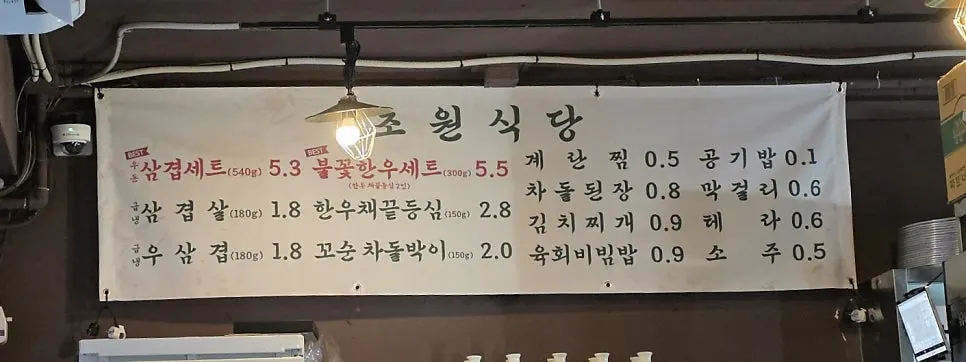 조원식당
BEST 우돈 삼겹세트(540g) 5.3
급냉 삼겹살(180g) 1.8
급냉 우삼겹(180g) 1.8
BEST 불꽃한우세트(300g) 5.5
(한우채끝등심2인)
한우채끝등심(150g) 2.8
꼬순차돌박이(150g) 2.0
계란찜 0.5
차돌된장 0.8
김치찌개 0.9
육회비빔밥 0.9
공기밥 0.1
막걸리 0.6
테라 0.6
소주 0.5